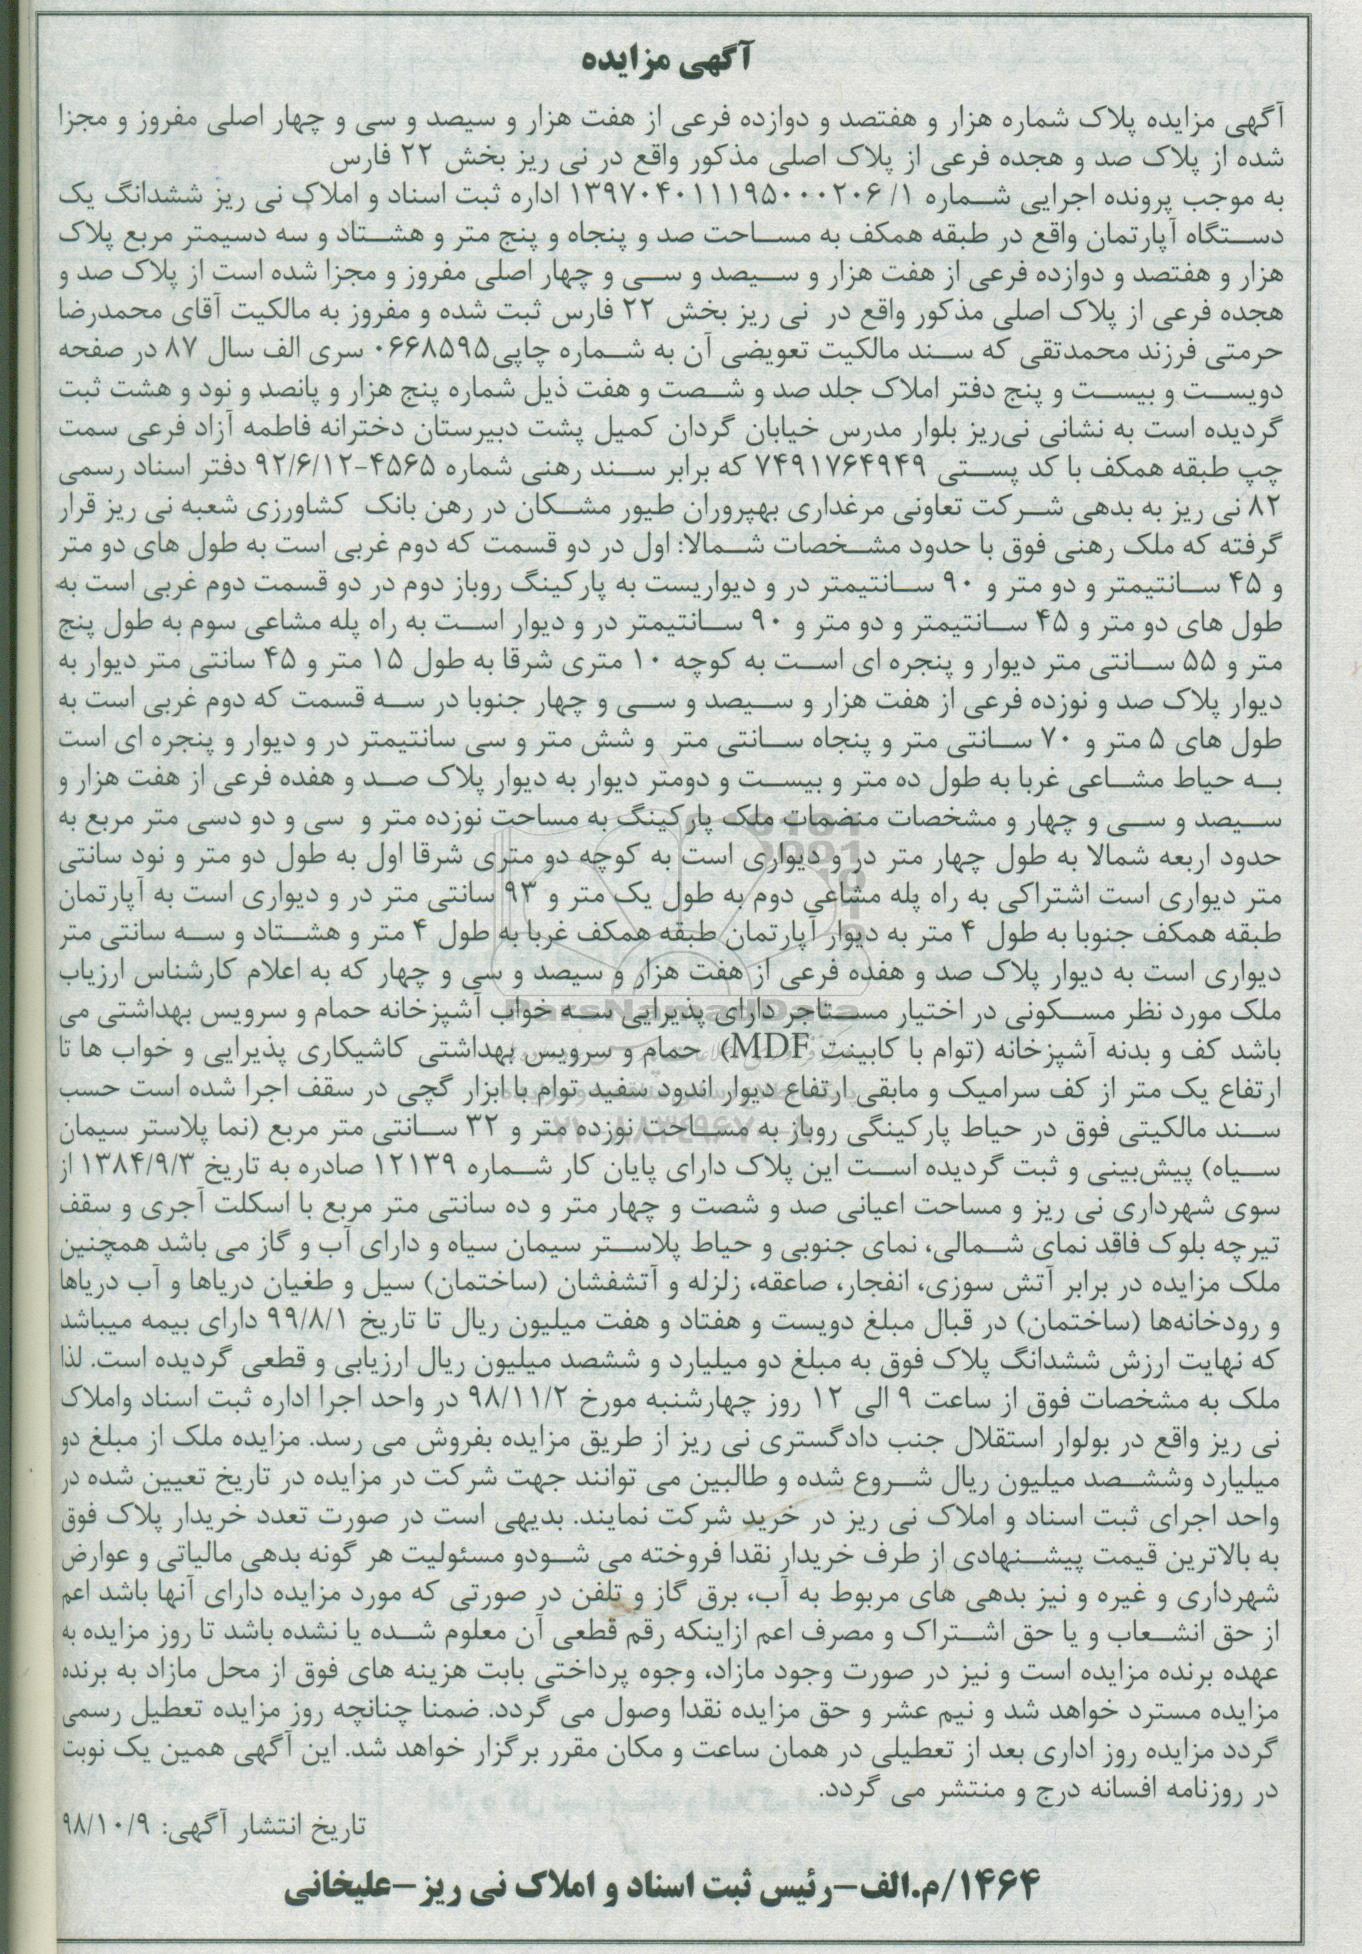 آگهی مزایده
آگهی مزایده پلاک شماره هزار و هفتصد و دوازده فرعی از هفت هزار و سیصد و سی و چهار اصلی مفروز و مجزا
شده از پلاک صد و هجده فرعی از پلاک اصلی مذکور واقع در نی ریز بخش ۲۲ فارس
به موجب پرونده اجرایی شماره ۱/ ۱۳۹۷۰۴۰۱۱۱۹۵۰۰۰۲۰۶ اداره ثبت اسناد و املاک نی ریز ششدانگ یک
دستگاه آپارتمان واقع در طبقه همکف به مساحت صد و پنجاه و پنج متر و هشتاد و سه دسیمتر مربع پلاک
هزار و هفتصد و دوازده فرعی از هفت هزار و سیصد و سی و چهار اصلی مفروز و مجزا شده است از پلاک صد و
هجده فرعی از پلاک اصلی مذکور واقع در نی ریز بخش ۲۲ فارس ثبت شده و مفروز به مالکیت آقای محمدرضا
حرمتی فرزند محمدتقی که سند مالکیت تعویضی آن به شماره چاپی۰۶۶۸۵۹۵ سری الف سال ۸۷ در صفحه
دویست و بیست و پنج دفتر املاک جلد صد و شصت و هفت ذیل شماره پنج هزار و پانصد و نود و هشت ثبت
گردیده است به نشانی نی‌ریز بلوار مدرس خیابان گردان کمیل پشت دبیرستان دخترانه فاطمه آزاد فرعی سمت
چپ طبقه همکف با کد پستی ۷۴۹۱۷۶۴۹۴۹ که برابر سند رهنی شماره ۴۵۶۵-۹۲/۶/۱۲ دفتر اسناد رسمی
۸۲ نی ریز به بدهی شرکت تعاونی مرغداری بهپروران طیور مشکان در رهن بانک کشاورزی شعبه نی ریز قرار
گرفته که ملک رهنی فوق با حدود مشخصات شمالا: اول در دو قسمت که دوم غربی است به طول های دو متر
و ۴۵ سانتیمتر و دو متر و ۹۰ سانتیمتر در و دیواریست به پارکینگ روباز دوم در دو قسمت دوم غربی است به
طول های دو متر و ۴۵ سانتیمتر و دو متر و ۹۰ سانتیمتر در و دیوار است به راه پله مشاعی سوم به طول پنج
متر و ۵۵ سانتی متر دیوار و پنجره ای است به کوچه ۱۰ متری شرقا به طول ۱۵ متر و ۴۵ سانتی متر دیوار به
دیوار پلاک صد و نوزده فرعی از هفت هزار و سیصد و سی و چهار جنوبا در سه قسمت که دوم غربی است به
طول های ۵ متر و ۷۰ سانتی متر و پنجاه سانتی متر و شش متر و سی سانتیمتر در و دیوار و پنجره ای است
به حیاط مشاعی غربا به طول ده متر و بیست و دومتر دیوار به دیوار پلاک صد و هفده فرعی از هفت هزار و
سیصد و سی و چهار و مشخصات منضمات ملک پارکینگ به مساحت نوزده متر و سی و دو دسی متر مربع به
حدود اربعه شمالا به طول چهار متر در و دیواری است به کوچه دو متری شرقا اول به طول دو متر و نود سانتی
متر دیواری است اشتراکی به راه پله مشاعی دوم به طول یک متر و ۹۳ سانتی متر در و دیواری است به آپارتمان
طبقه همکف جنوبا به طول ۴ متر به دیوار آپارتمان طبقه همکف غربا به طول ۴ متر و هشتاد و سه سانتی متر
دیواری است به دیوار پلاک صد و هفده فرعی از هفت هزار و سیصد و سی و چهار که به اعلام کارشناس ارزیاب
ملک مورد نظر مسکونی در اختیار مستاجر دارای پذیرایی سه خواب آشپزخانه حمام و سرویس بهداشتی می
باشد کف و بدنه آشپزخانه (توام با کابینت MDF) حمام و سرویس بهداشتی کاشیکاری پذیرایی و خواب ها تا
ارتفاع یک متر از کف سرامیک و مابقی ارتفاع دیوار اندود سفید توام با ابزار گچی در سقف اجرا شده است حسب
سند مالکیتی فوق در حیاط پارکینگی روباز به مساحت نوزده متر و ۳۲ سانتی متر مربع (نما پلاستر سیمان
سیاه) پیش‌بینی و ثبت گردیده است این پلاک دارای پایان کار شماره ۱۲۱۳۹ صادره به تاریخ ۱۳۸۴/۹/۳ از
سوی شهرداری نی ریز و مساحت اعیانی صد و شصت و چهار متر و ده سانتی متر مربع با اسکلت آجری و سقف
تیرچه بلوک فاقد نمای شمالی، نمای جنوبی و حیاط پلاستر سیمان سیاه و دارای آب و گاز می باشد همچنین
ملک مزایده در برابر آتش سوزی، انفجار، صاعقه، زلزله و آتشفشان (ساختمان) سیل و طغیان دریاها و آب دریاها
و رودخانه‌ها (ساختمان) در قبال مبلغ دویست و هفتاد و هفت میلیون ریال تا تاریخ ۹۹/۸/۱ دارای بیمه میباشد
که نهایت ارزش ششدانگ پلاک فوق به مبلغ دو میلیارد و ششصد میلیون ریال ارزیابی و قطعی گردیده است. لذا
ملک به مشخصات فوق از ساعت ۹ الی ۱۲ روز چهارشنبه مورخ ۹۸/۱۱/۲ در واحد اجرا اداره ثبت اسناد واملاک
نی ریز واقع در بولوار استقلال جنب دادگستری نی ریز از طریق مزایده بفروش می رسد. مزایده ملک از مبلغ دو
میلیارد وششصد میلیون ریال شروع شده و طالبین می توانند جهت شرکت در مزایده در تاریخ تعیین شده در
واحد اجرای ثبت اسناد و املاک نی ریز در خرید شرکت نمایند. بدیهی است در صورت تعدد خریدار پلاک فوق
به بالاترین قیمت پیشنهادی از طرف خریدار نقدا فروخته می شودو مسئولیت هر گونه بدهی مالیاتی و عوارض
شهرداری و غیره و نیز بدهی های مربوط به آب، برق گاز و تلفن در صورتی که مورد مزایده دارای آنها باشد اعم
از حق انشعاب و یا حق اشتراک و مصرف اعم ازاینکه رقم قطعی آن معلوم شده یا نشده باشد تا روز مزایده به
عهده برنده مزایده است و نیز در صورت وجود مازاد، وجوه پرداختی بابت هزینه های فوق از محل مازاد به برنده
مزایده مسترد خواهد شد و نیم عشر و حق مزایده نقدا وصول می گردد. ضمنا چنانچه روز مزایده تعطیل رسمی
گردد مزایده روز اداری بعد از تعطیلی در همان ساعت و مکان مقرر برگزار خواهد شد. این آگهی همین یک نوبت
در روزنامه افسانه درج و منتشر می گردد.
تاریخ انتشار آگهی: ۹۸/۱۰/۹
۱۴۶۴/م.الف-رئیس ثبت اسناد و املاک نی ریز-علیخانی
ParsNamadData